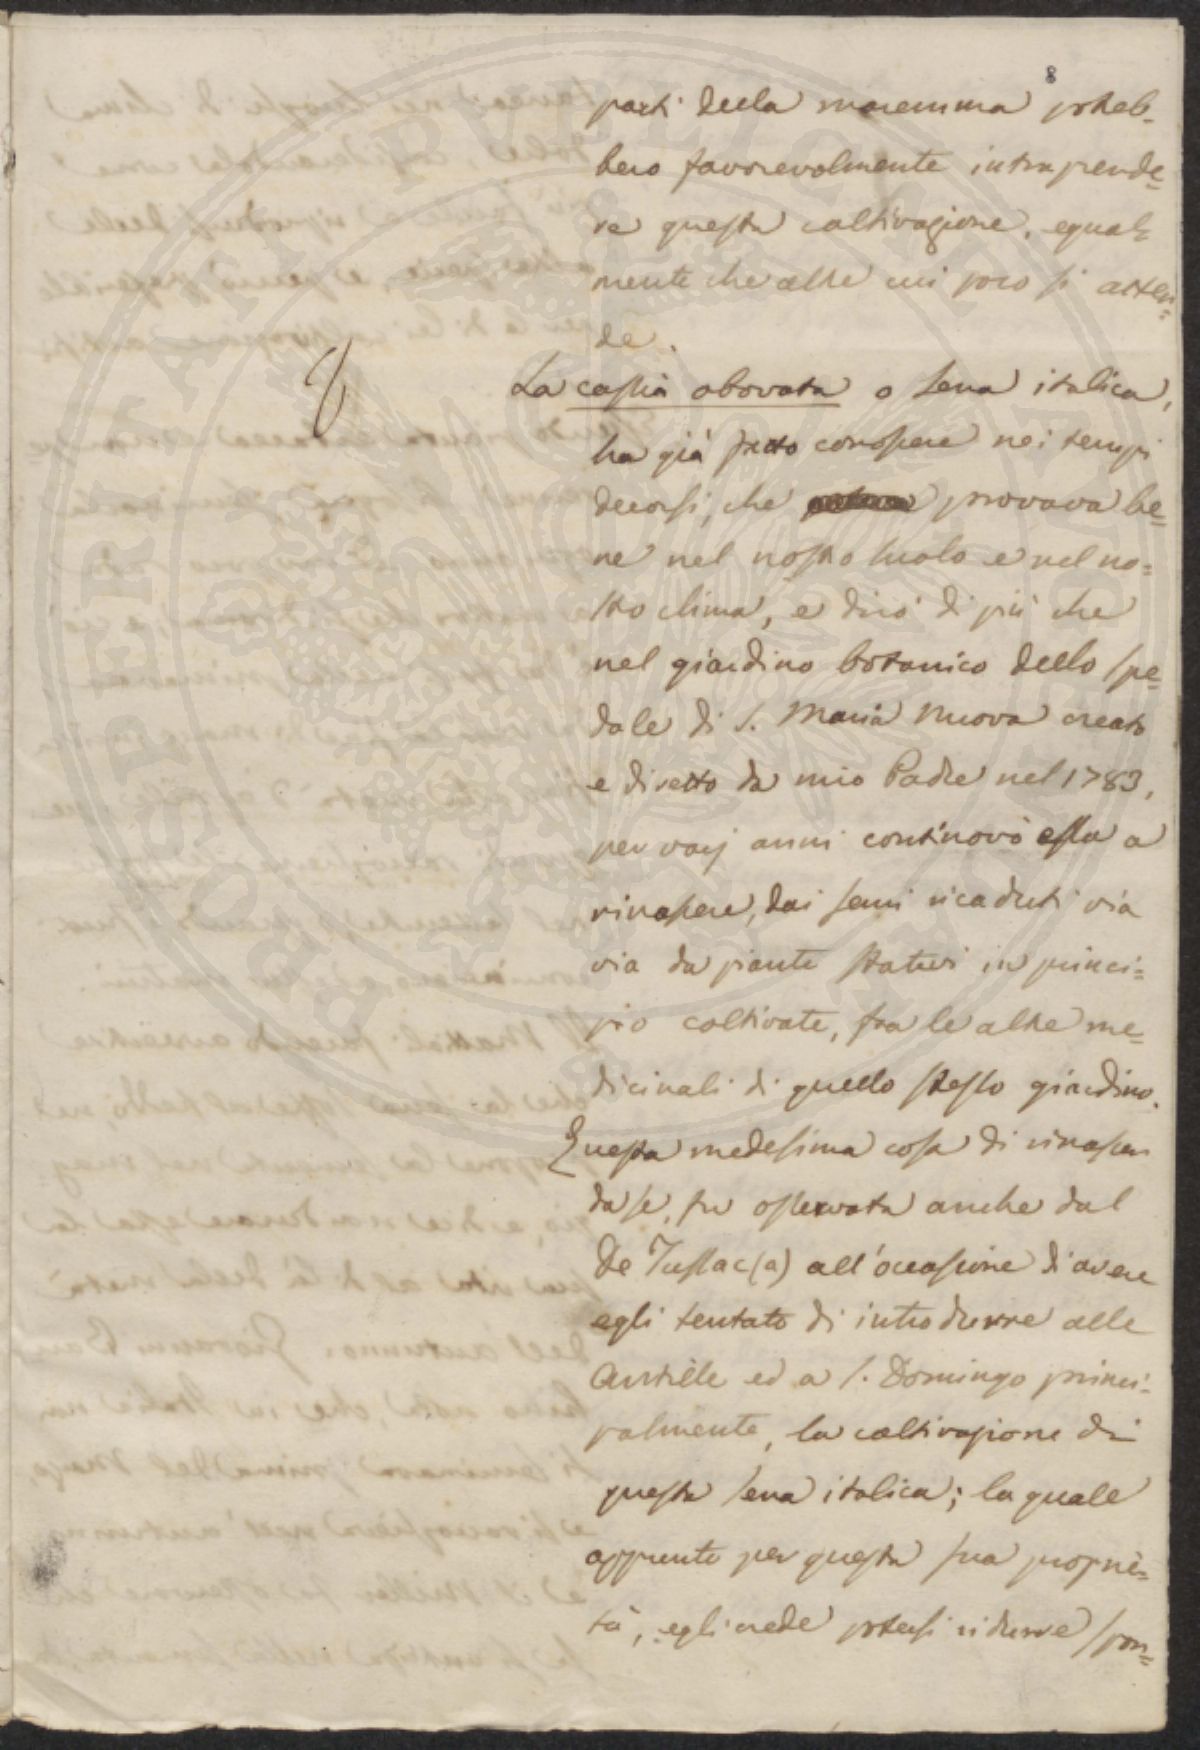 8
parti della maremma potreb-
bero favorevolmente intraprende-
re questa coltivazione, egual-
mente che altre cui poco si atten-
de.
La cassia obovata o Sena italica,
ha già fatto conoscere nei tempi
decorsi, che provava be-
ne nel nostro suolo e nel no-
stro clima, e dirò di più che
nel giardino botanico dello spe-
dale di S. Maria Nuova creato
e diretto da mio Padre nel 1783,
per varj anni continovò essa a
rinascere, dai semi ricaduti via
via da piante statevi in princi-
pio coltivate, fra le altre me-
dicinali di quello stesso giardino.
Questa medesima cosa di rinascer
da se, fu osservata anche dal
De Tussac (a) all'occasione di avere
egli tentato di introdurre alle
Antille ed a S. Domingo princi-
palmente, la coltivazione di
questa Sena italica; la quale
appunto per questa sua proprie-
tà, egli crede potersi ridurre spon-
PROSPERITATI PVBLICAE